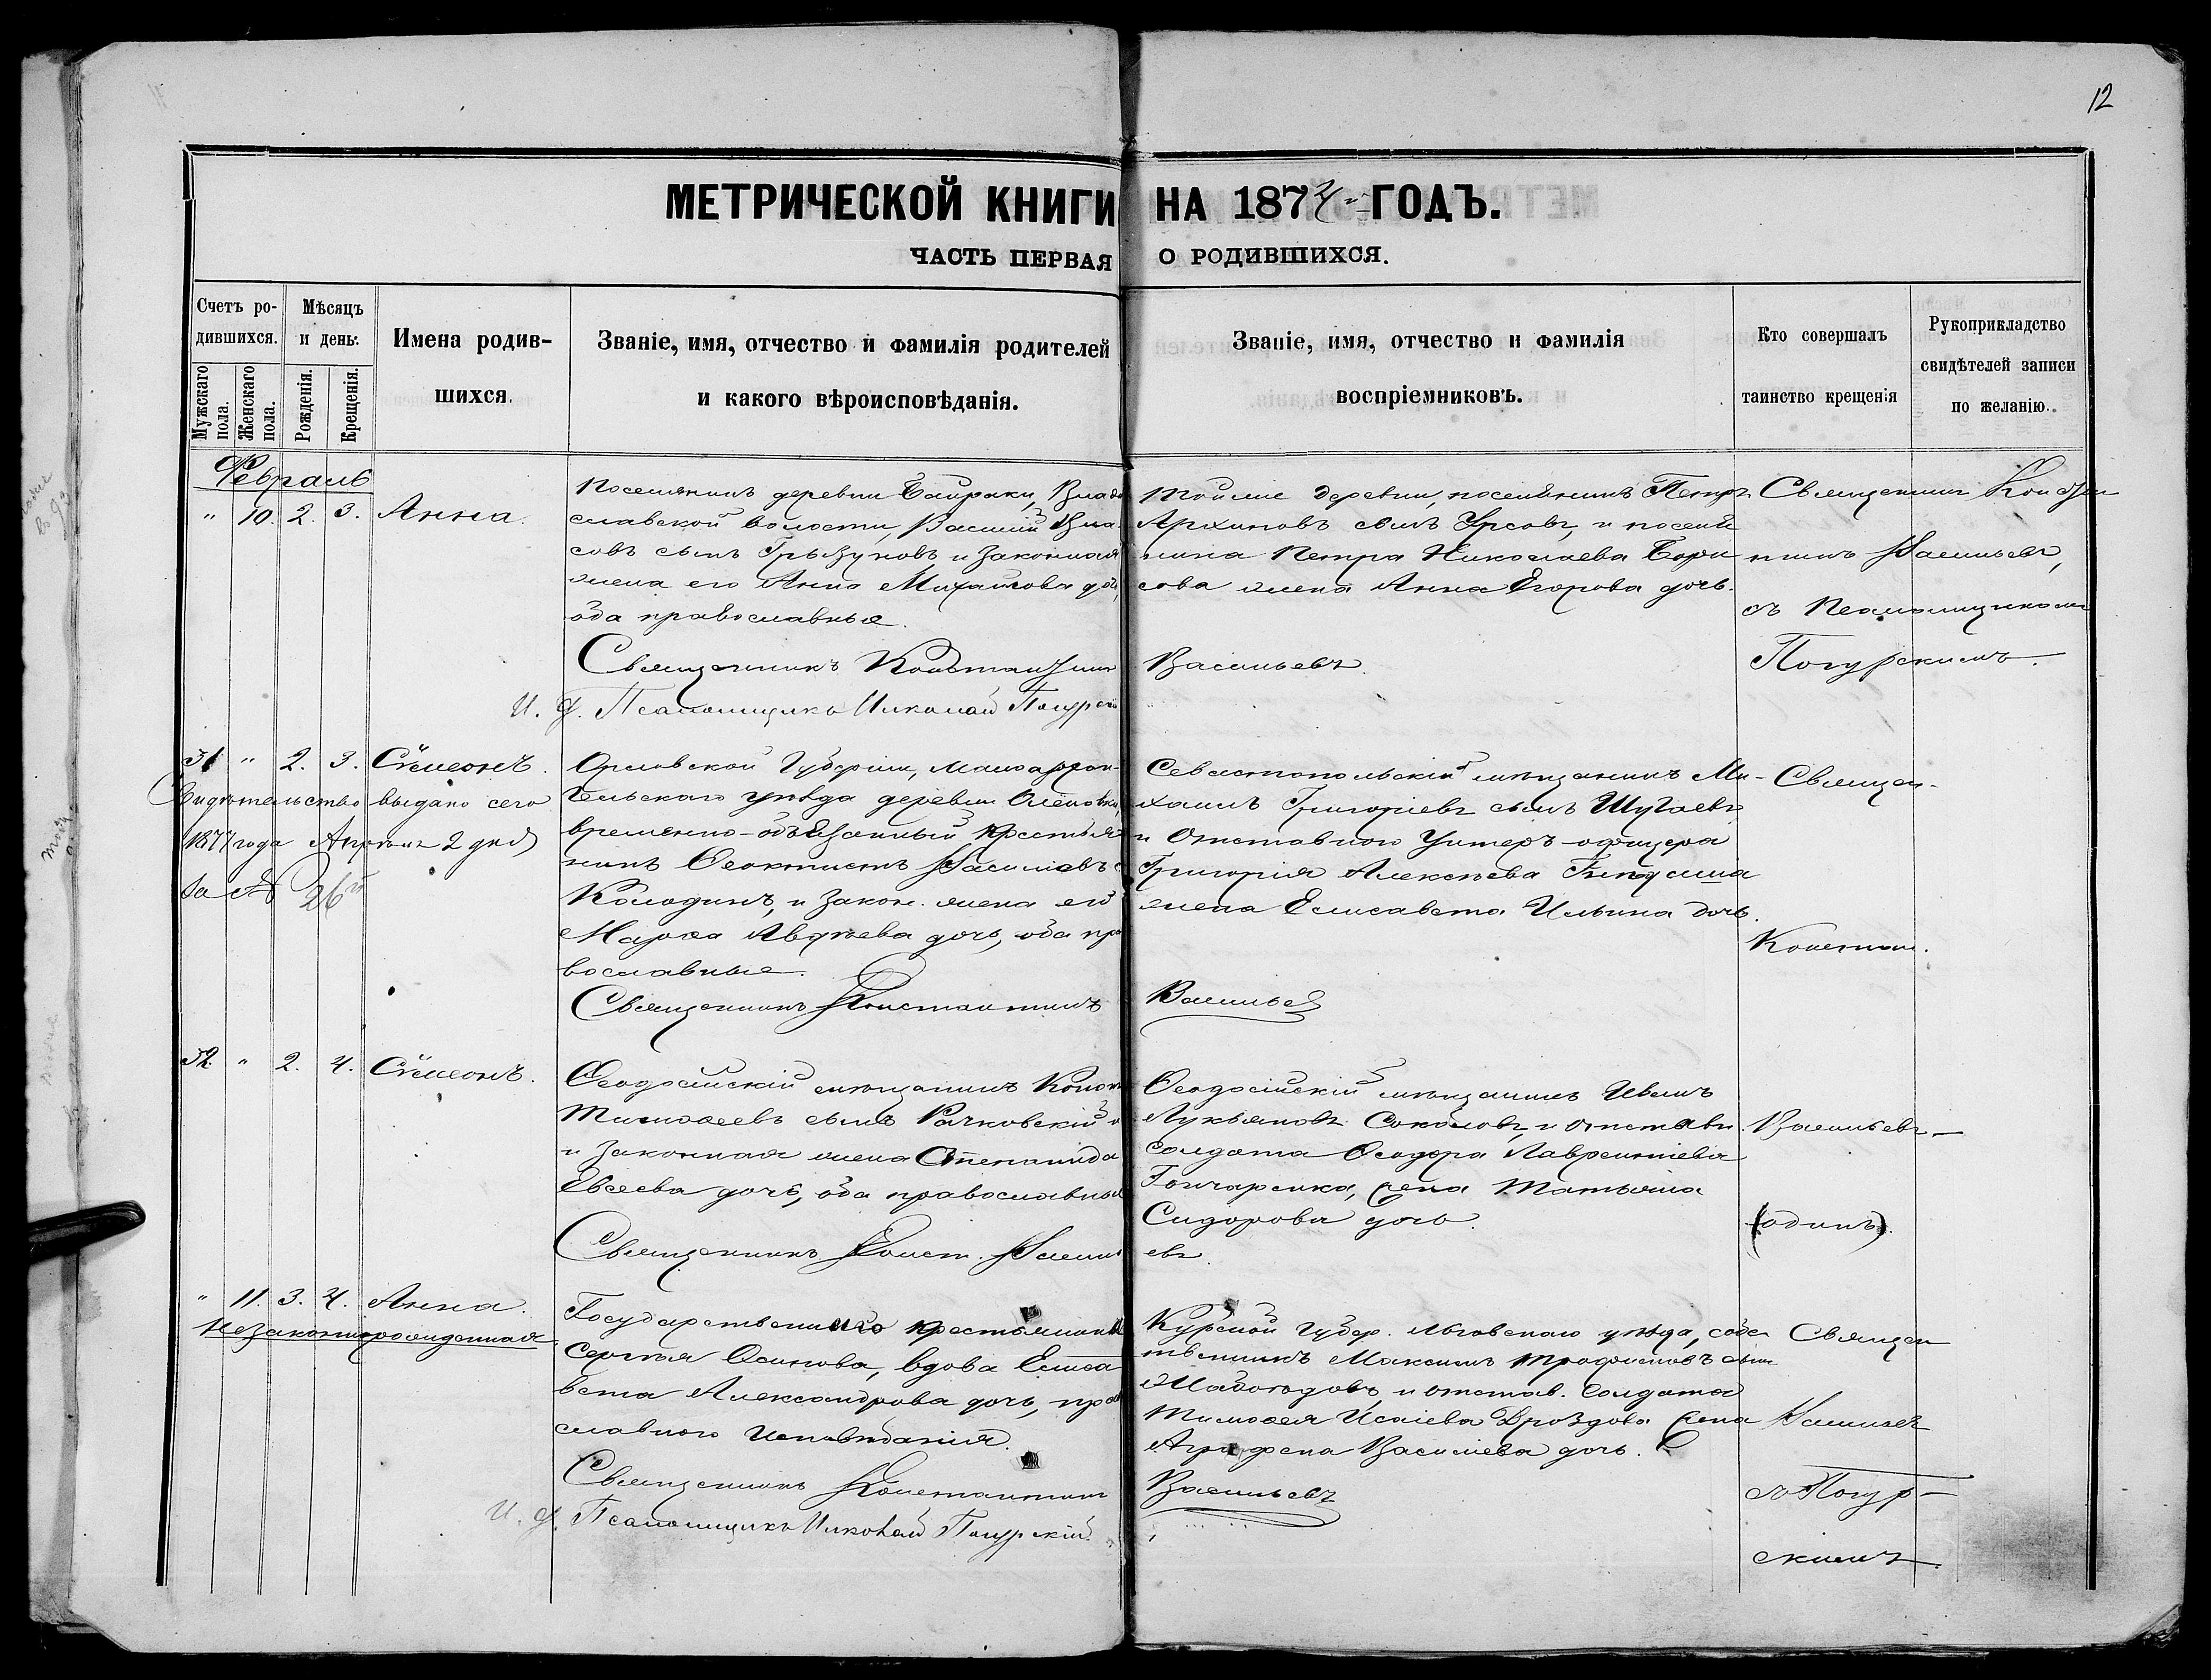 12
МЕТРИЧЕСКОЙ КНИГИ НА 1874 ГОДЪ.
ЧАСТЬ ПЕРВАЯ О РОДИВШИХСЯ.
Счетъ ро-
дившихся.
Мужскаго пола.
Женскаго пола.
Мѣсяцъ
и день.
Рожденія.
Крещенія.
Имена родив-
шихся.
Званіе, имя, отчество и фамилія родителей
и какого вѣроисповѣданія.
Званіе, имя, отчество и фамилія
воспріемниковъ.
Кто совершалъ
таинство крещенія
Рукоприкладство
свидѣтелей записи
по желанію.
Февраль
" 10. 2. 3. Анна.
Поселянинъ деревни Байраки, Влади
славской волости, Василий Вла
совъ сынъ Грызуновъ и законная
жена его Анна Михайлова дочь,
оба православные.
Священникъ Константинъ
И. д. Псаломщика Николай Погурскій
Тойже деревни, поселянинъ Петръ
Архиповъ сынъ Урсовъ, и поселя
нина Петра Николаева Бори
сова жена Анна Егорова дочь.
Васильевъ.
Священник Констан
тинъ Васильевъ,
съ Псаломщикомъ
Погурскимъ.
31 " 2. 3. Сѵмеонъ.
Свидѣтельство выдано сего
1877 года Апрѣля 2 дня
за № 26й
Орловской Губерніи, Малоархан-
гельскаго уѣзда деревни Оленовки,
временно-обязанный крестья
нинъ Ѳеоктистъ Васильевъ с
Колодинъ, и закон. жена его
Марѳа Авдѣева дочь, оба пра
вославные.
Священникъ Константинъ
Севастопольскій мѣщанинъ Ми-
хаилъ Григоріевъ сынъ Шугаевъ
и Отставного Унтеръ-офицера
Григорія Алексѣева
жена Елисавета Ильина дочь.
Васильевъ
Священ-
Констан.
32 " 2. 4. Сѵмеонъ.
Ѳеодосійскій мѣщанинъ Конон
Тимоѳеевъ сынъ Рачковскій
и законная жена Степанида
Евсеева дочь, оба православные
Священникъ Конст. Василь
Ѳеодосійскій мѣщанинъ Иванъ
Лукьяновъ Соколовъ, и отставн.
солдата Ѳеодора Лаврентіева
Гончаренка, жена Татьяна
Сидорова дочь.
евъ.
Васильевъ
(одинъ).
" 11. 3. 4. Анна.
Незаконнорожденная
Государственнаго крестьянина
Сергѣя Осипова, вдова Елиса
вета Александрова дочь, право
славного исповѣданія.
Священникъ Константинъ
И. д. Псаломщика Николай Погурскій.
Курской губер. Льговскаго уѣзда, собс
твенникъ Максимъ Трофимовъ сынъ
Жабоѣдовъ, и отстав. солдата
Тимоѳея Исаіева Дроздова жена
Агрифена Васильева дочь.
Васильевъ
Священ
Васильев
съ Погур-
скимъ.